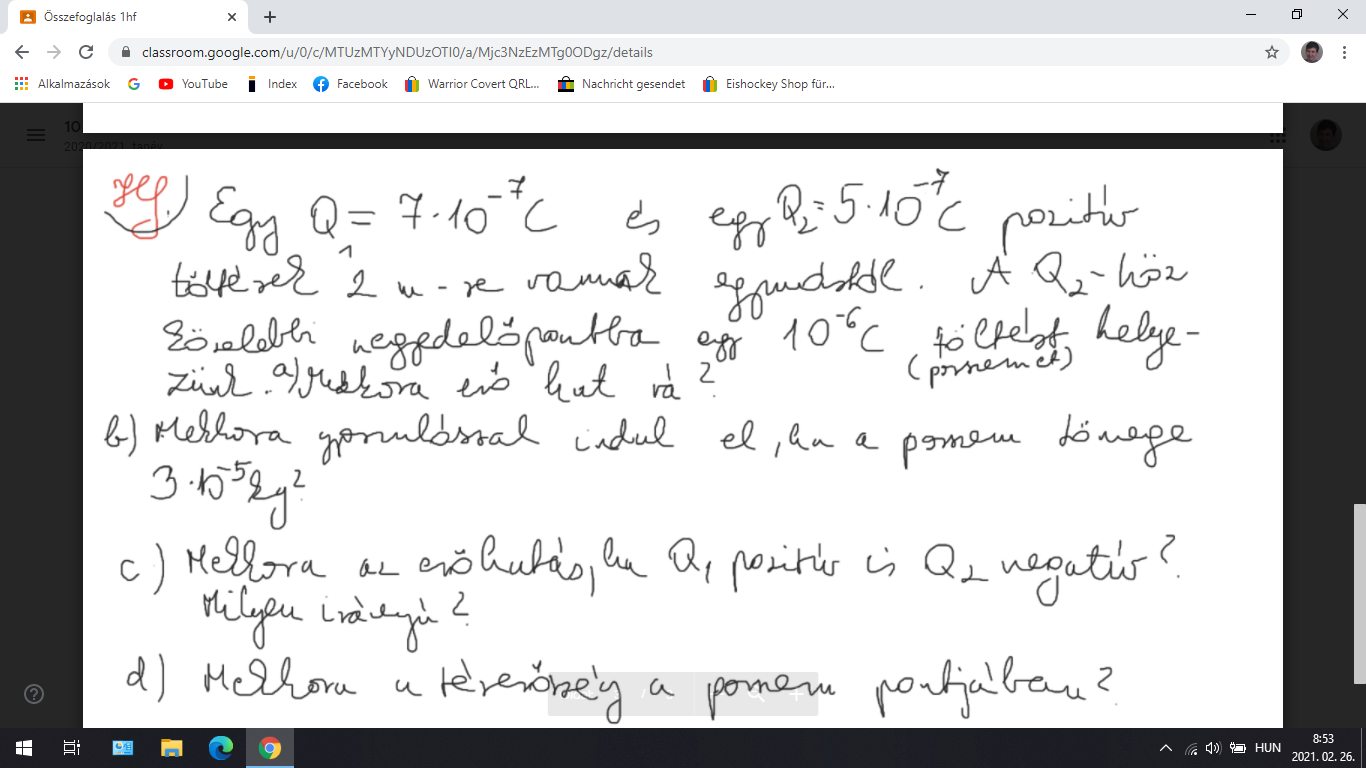 Összefoglalás 1hf
classroom.google.com/u/0/c/MTUzMTYyNDUzOTI0/a/Mjc3NzEzMTg0ODgz/details
Alkalmazások YouTube Index Facebook Warrior Covert QRL... Nachricht gesendet Eishockey Shop für...
10.
2020/2021. tanév
Hf. Egy Q₁ = 7·10⁻⁷C és egy Q₂ = 5·10⁻⁷C pozitív
töltések 2 m-re vannak egymástól. A Q₂-höz
közelebbi negyedelőpontba egy 10⁻⁶C töltést helye-
(porszemet)
zünk. a) Mekkora erő hat rá?
b) Mekkora gyorsulással indul el, ha a porszem tömege
3·10⁻⁵kg?
c) Mekkora az erőhatás, ha Q₁ pozitív és Q₂ negatív?
Milyen irányú?
d) Mekkora a térerősség a porszem pontjában?
HUN
8:53
2021. 02. 26.